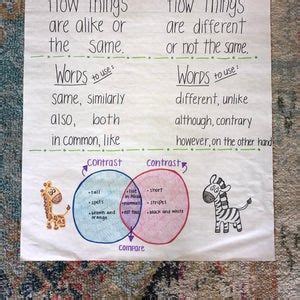 How things
are alike or
the same.
How things
are different
or not the same.
Words to use:
same, similarly
also, both
in common, like
Words to use:
different, unlike
although, contrary
however, on the other hand
Contrast
Contrast
• tall
• spots
• brown and
orange
• live
in Africa
• mammals
• eat
• short
• stripes
• black and white
Compare